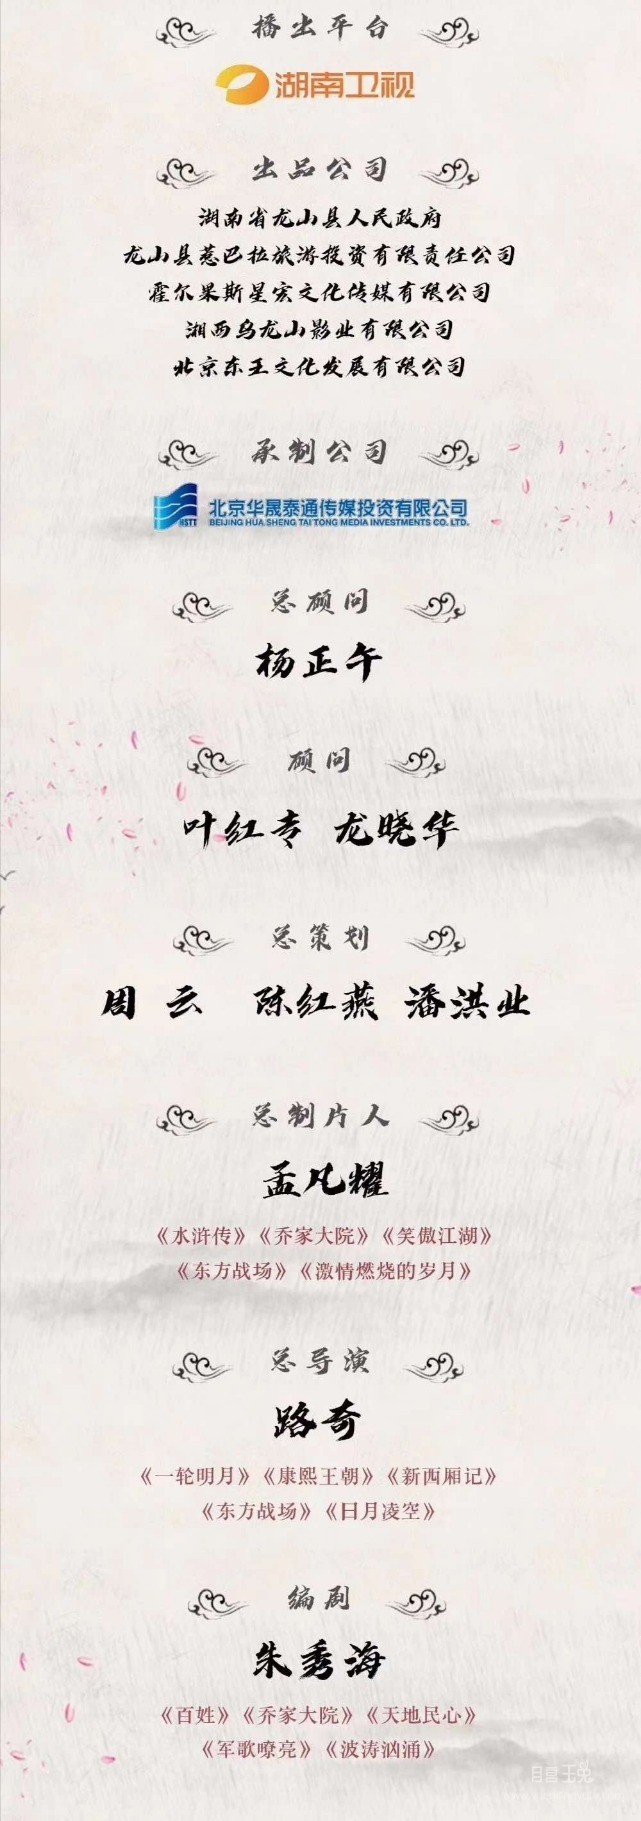 播出平台
湖南卫视
出品公司
湖南省龙山县人民政府
龙山县惹巴拉旅游投资有限责任公司
霍尔果斯星宏文化传媒有限公司
湘西乌龙山影业有限公司
北京东王文化发展有限公司
承制公司
HSTT
北京华晟泰通传媒投资有限公司
BEIJING HUA SHENG TAI TONG MEDIA INVESTMENTS CO. LTD.
总顾问
杨正午
顾问
叶红专 龙晓华
总策划
周云 陈红燕 潘洪业
总制片人
孟凡耀
《水浒传》《乔家大院》《笑傲江湖》
《东方战场》《激情燃烧的岁月》
总导演
路奇
《一轮明月》《康熙王朝》《新西厢记》
《东方战场》《日月凌空》
编剧
朱秀海
《百姓》《乔家大院》《天地民心》
《军歌嘹亮》《波涛汹涌》